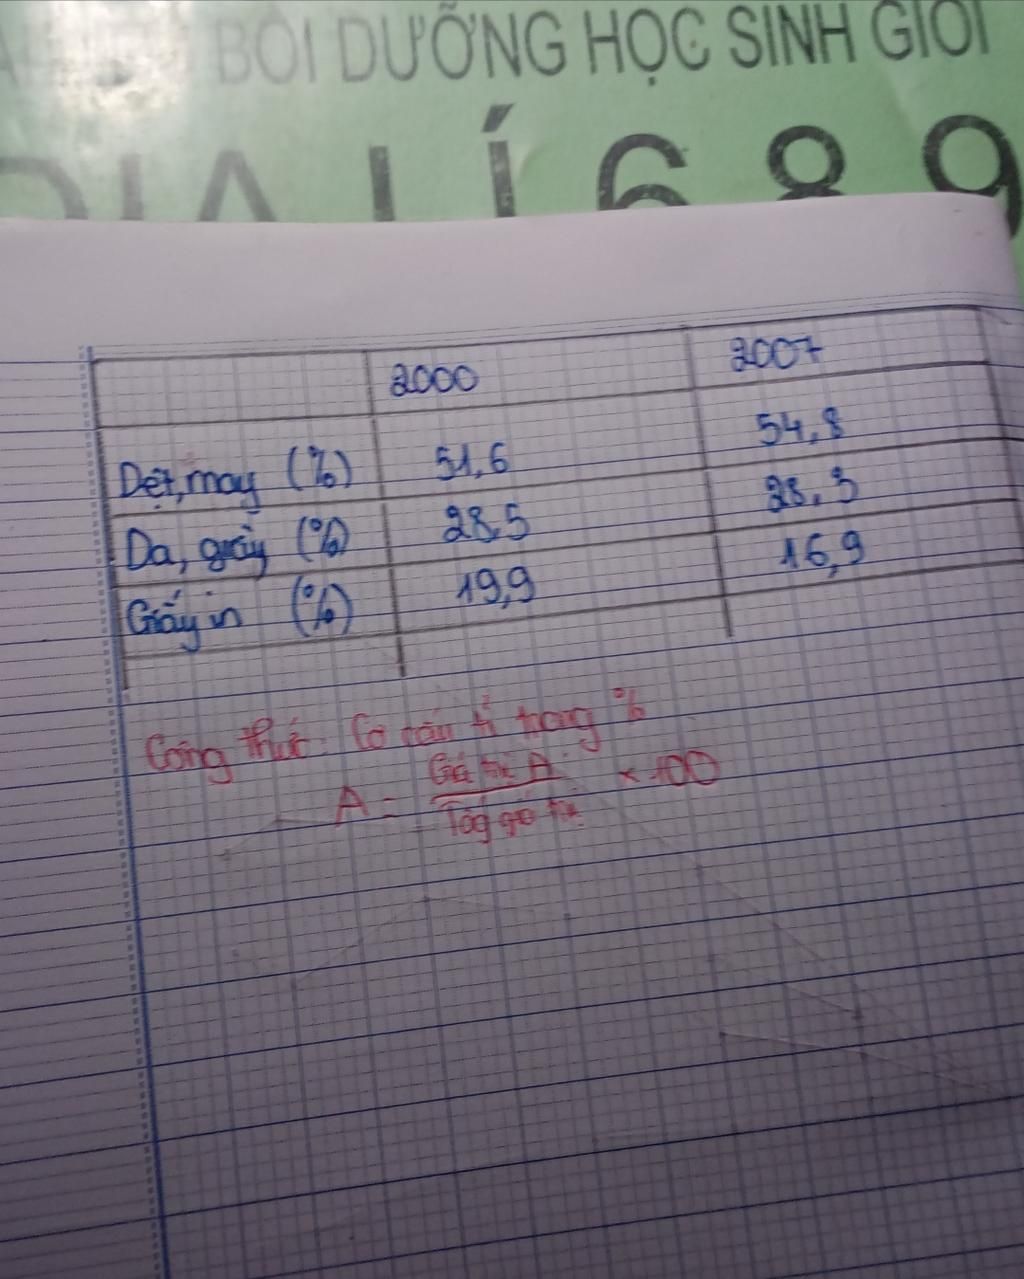 BỒI DƯỠNG HỌC SINH GIỎI
ĐỊA LÍ 6 8 9
2000 2007
Dệt, may (%) 51,6 54,8
Da, giầy (%) 28,5 28,3
Giấy in (%) 19,9 16,9
Công thức: Cơ cấu tỉ trọng %
A = Giá trị A × 100
Tổg giá trị